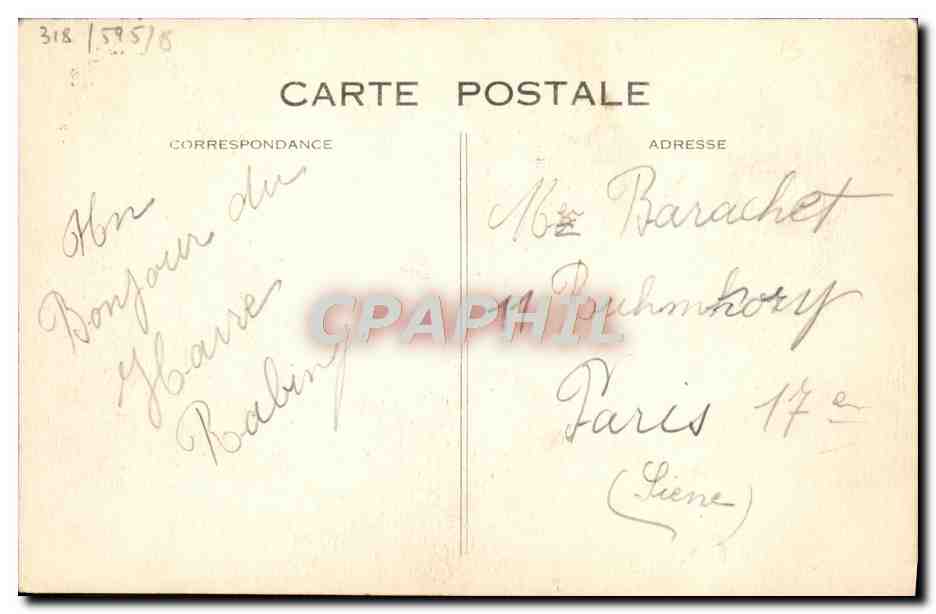 318/595/8
CARTE POSTALE
CORRESPONDANCE
ADRESSE
Un
Bonjour du
Havre
Robiny
Mr Barachet
11 Ruhmkorf
Paris 17 e
(Siene)
CPAPHIL